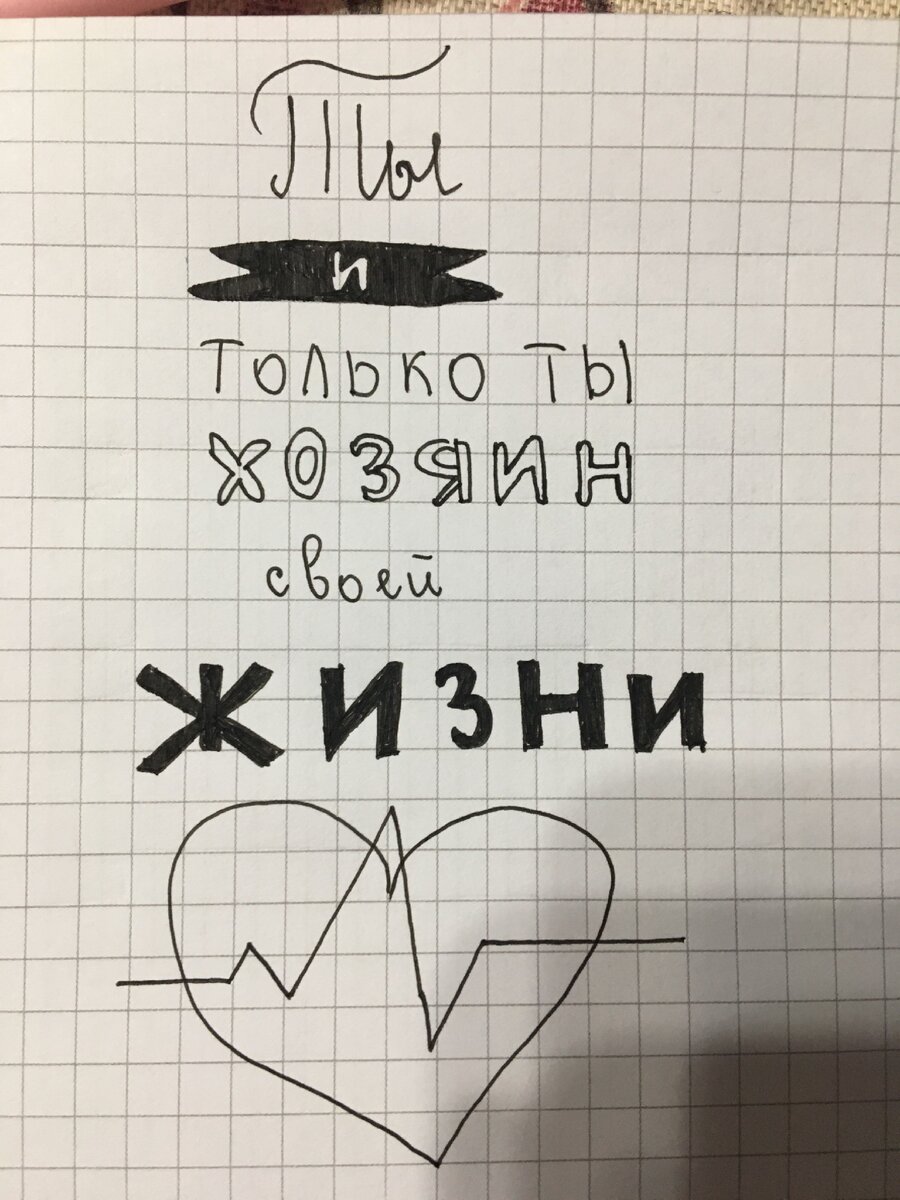 Ты
и
только ты
хозяин
своей
жизни